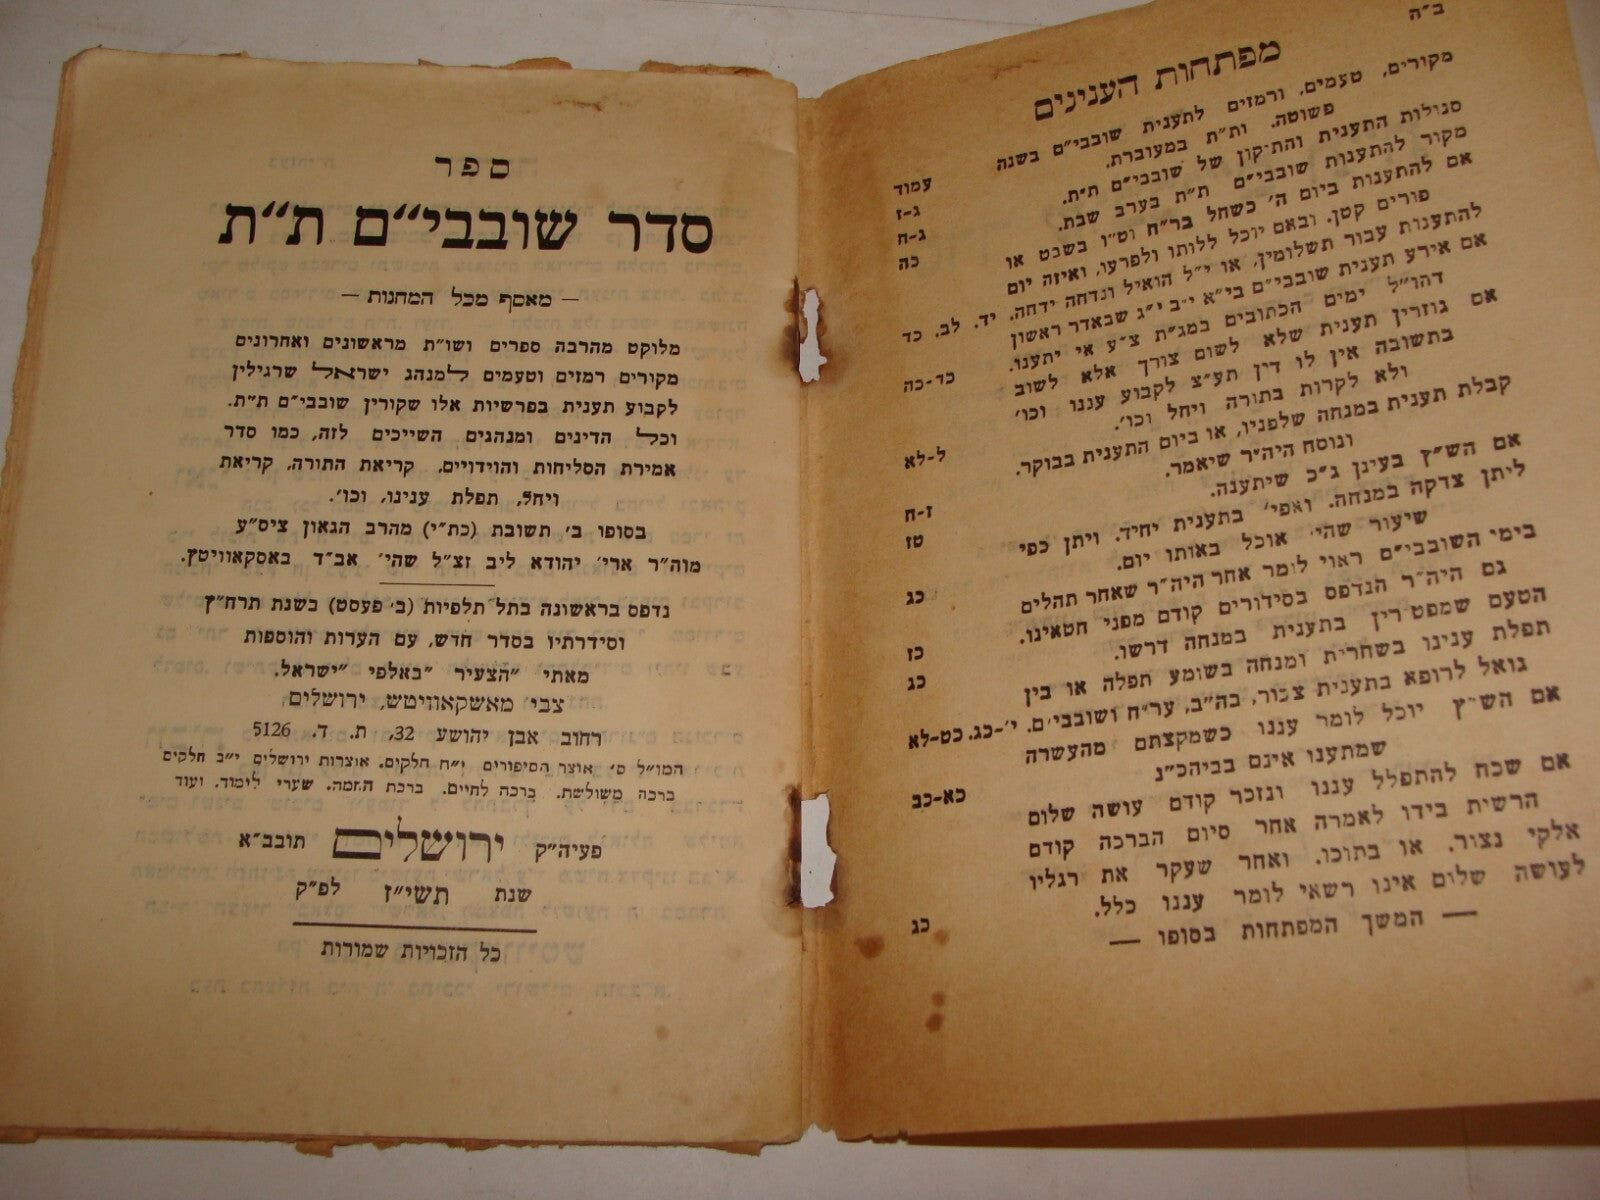 ב״ה
מפתחות הענינים
מקורים, טעמים, ורמזים לתענית שובבי״ם בשנה
פשוטה. ות״ת במעוברת.
עמוד
סגולות התענית והתיקון של שובבי״ם ת״ת.
ג-ז
מקור להתענות שובבי״ם ת״ת בערב שבת.
ג-ח
אם להתענות ביום ה׳ כשחל בר״ח וט״ו בשבט או
פורים קטן. ובאם יוכל ללותו ולפרעו, ואיזה יום
כה
להתענות עבור תשלומין, או י״ל הואיל ונדחה ידחה. יד. לב. כד
אם אירע תענית שובבי״ם בי״א י״ב י״ג שבאדר ראשון
דהו״ל ימים הכתובים במג״ת צ״ע אי יתענו.
כד-כה
אם גוזרין תענית שלא לשום צורך אלא לשוב
בתשובה אין לו דין תע״צ לקבוע עננו וכו׳
ולא לקרות בתורה ויחל וכו׳.
ל-לא
קבלת תענית במנחה שלפניו, או ביום התענית בבוקר.
ונוסח היה״ר שיאמר.
ז-ח
אם הש״ץ בעינן ג״כ שיתענה.
טז
ליתן צדקה במנחה. ואפי׳ בתענית יחיד. ויתן כפי
שיעור שהי׳ אוכל באותו יום.
כג
בימי השובבי״ם ראוי לומר אחר היה״ר שאחר תהלים
גם היה״ר הנדפס בסידורים קודם מפני חטאינו.
כז
הטעם שמפטירין בתענית במנחה דרשו.
כג
תפלת ענינו בשחרית ומנחה בשומע תפלה או בין
גואל לרופא בתענית צבור, בה״ב, ער״ח ושובבי״ם. י׳-כג. כט-לא
אם הש״ץ יוכל לומר עננו כשמקצתם מהעשרה
שמתענו אינם בביהכ״נ
כא-כב
אם שכח להתפלל עננו ונזכר קודם עושה שלום
הרשית בידו לאמרה אחר סיום הברכה קודם
אלקי נצור. או בתוכו. ואחר שעקר את רגליו
לעושה שלום אינו רשאי לומר עננו כלל.
כג
— המשך המפתחות בסופו —
ספר
סדר שובבי״ם ת״ת
— מאסף מכל המחנות —
מלוקט מהרבה ספרים ושו״ת מראשונים ואחרונים
מקורים רמזים וטעמים למנהג ישראל שרגילין
לקבוע תענית בפרשיות אלו שקורין שובבי״ם ת״ת.
וכל הדינים ומנהגים השייכים לזה, כמו סדר
אמירת הסליחות והוידויים, קריאת התורה, קריאת
ויחל, תפלת ענינו, וכו׳.
בסופו ב׳ תשובת (כת״י) מהרב הגאון ציס״ע
מוה״ר ארי׳ יהודא ליב זצ״ל שהי׳ אב״ד באסקאוויטץ.
נדפס בראשונה בתל תלפיות (ב׳ פעסט) בשנת תרח״ץ
וסידרתיו בסדר חדש, עם הערות והוספות
מאתי ״הצעיר ״באלפי ״ישראל.
צבי מאשקאוויטש, ירושלים
רחוב אבן יהושע 32, ת. ד. 5126
המו״ל ס׳ אוצר הסיפורים י״ח חלקים. אוצרות ירושלים י״ב חלקים
ברכה משולשת. ברכה לחיים. ברכת החמה. שערי לימוד. ועוד
פעיה״ק ירושלים תובב״א
שנת תשי״ז לפ״ק
כל הזכויות שמורות